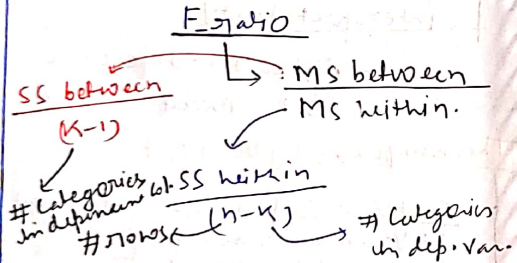 F_ratio
: MS between
MS within.
SS between
(K-1)
# Categories
in dependent col.
SS within
(n-K)
# rows
# Categories
in dep. var.